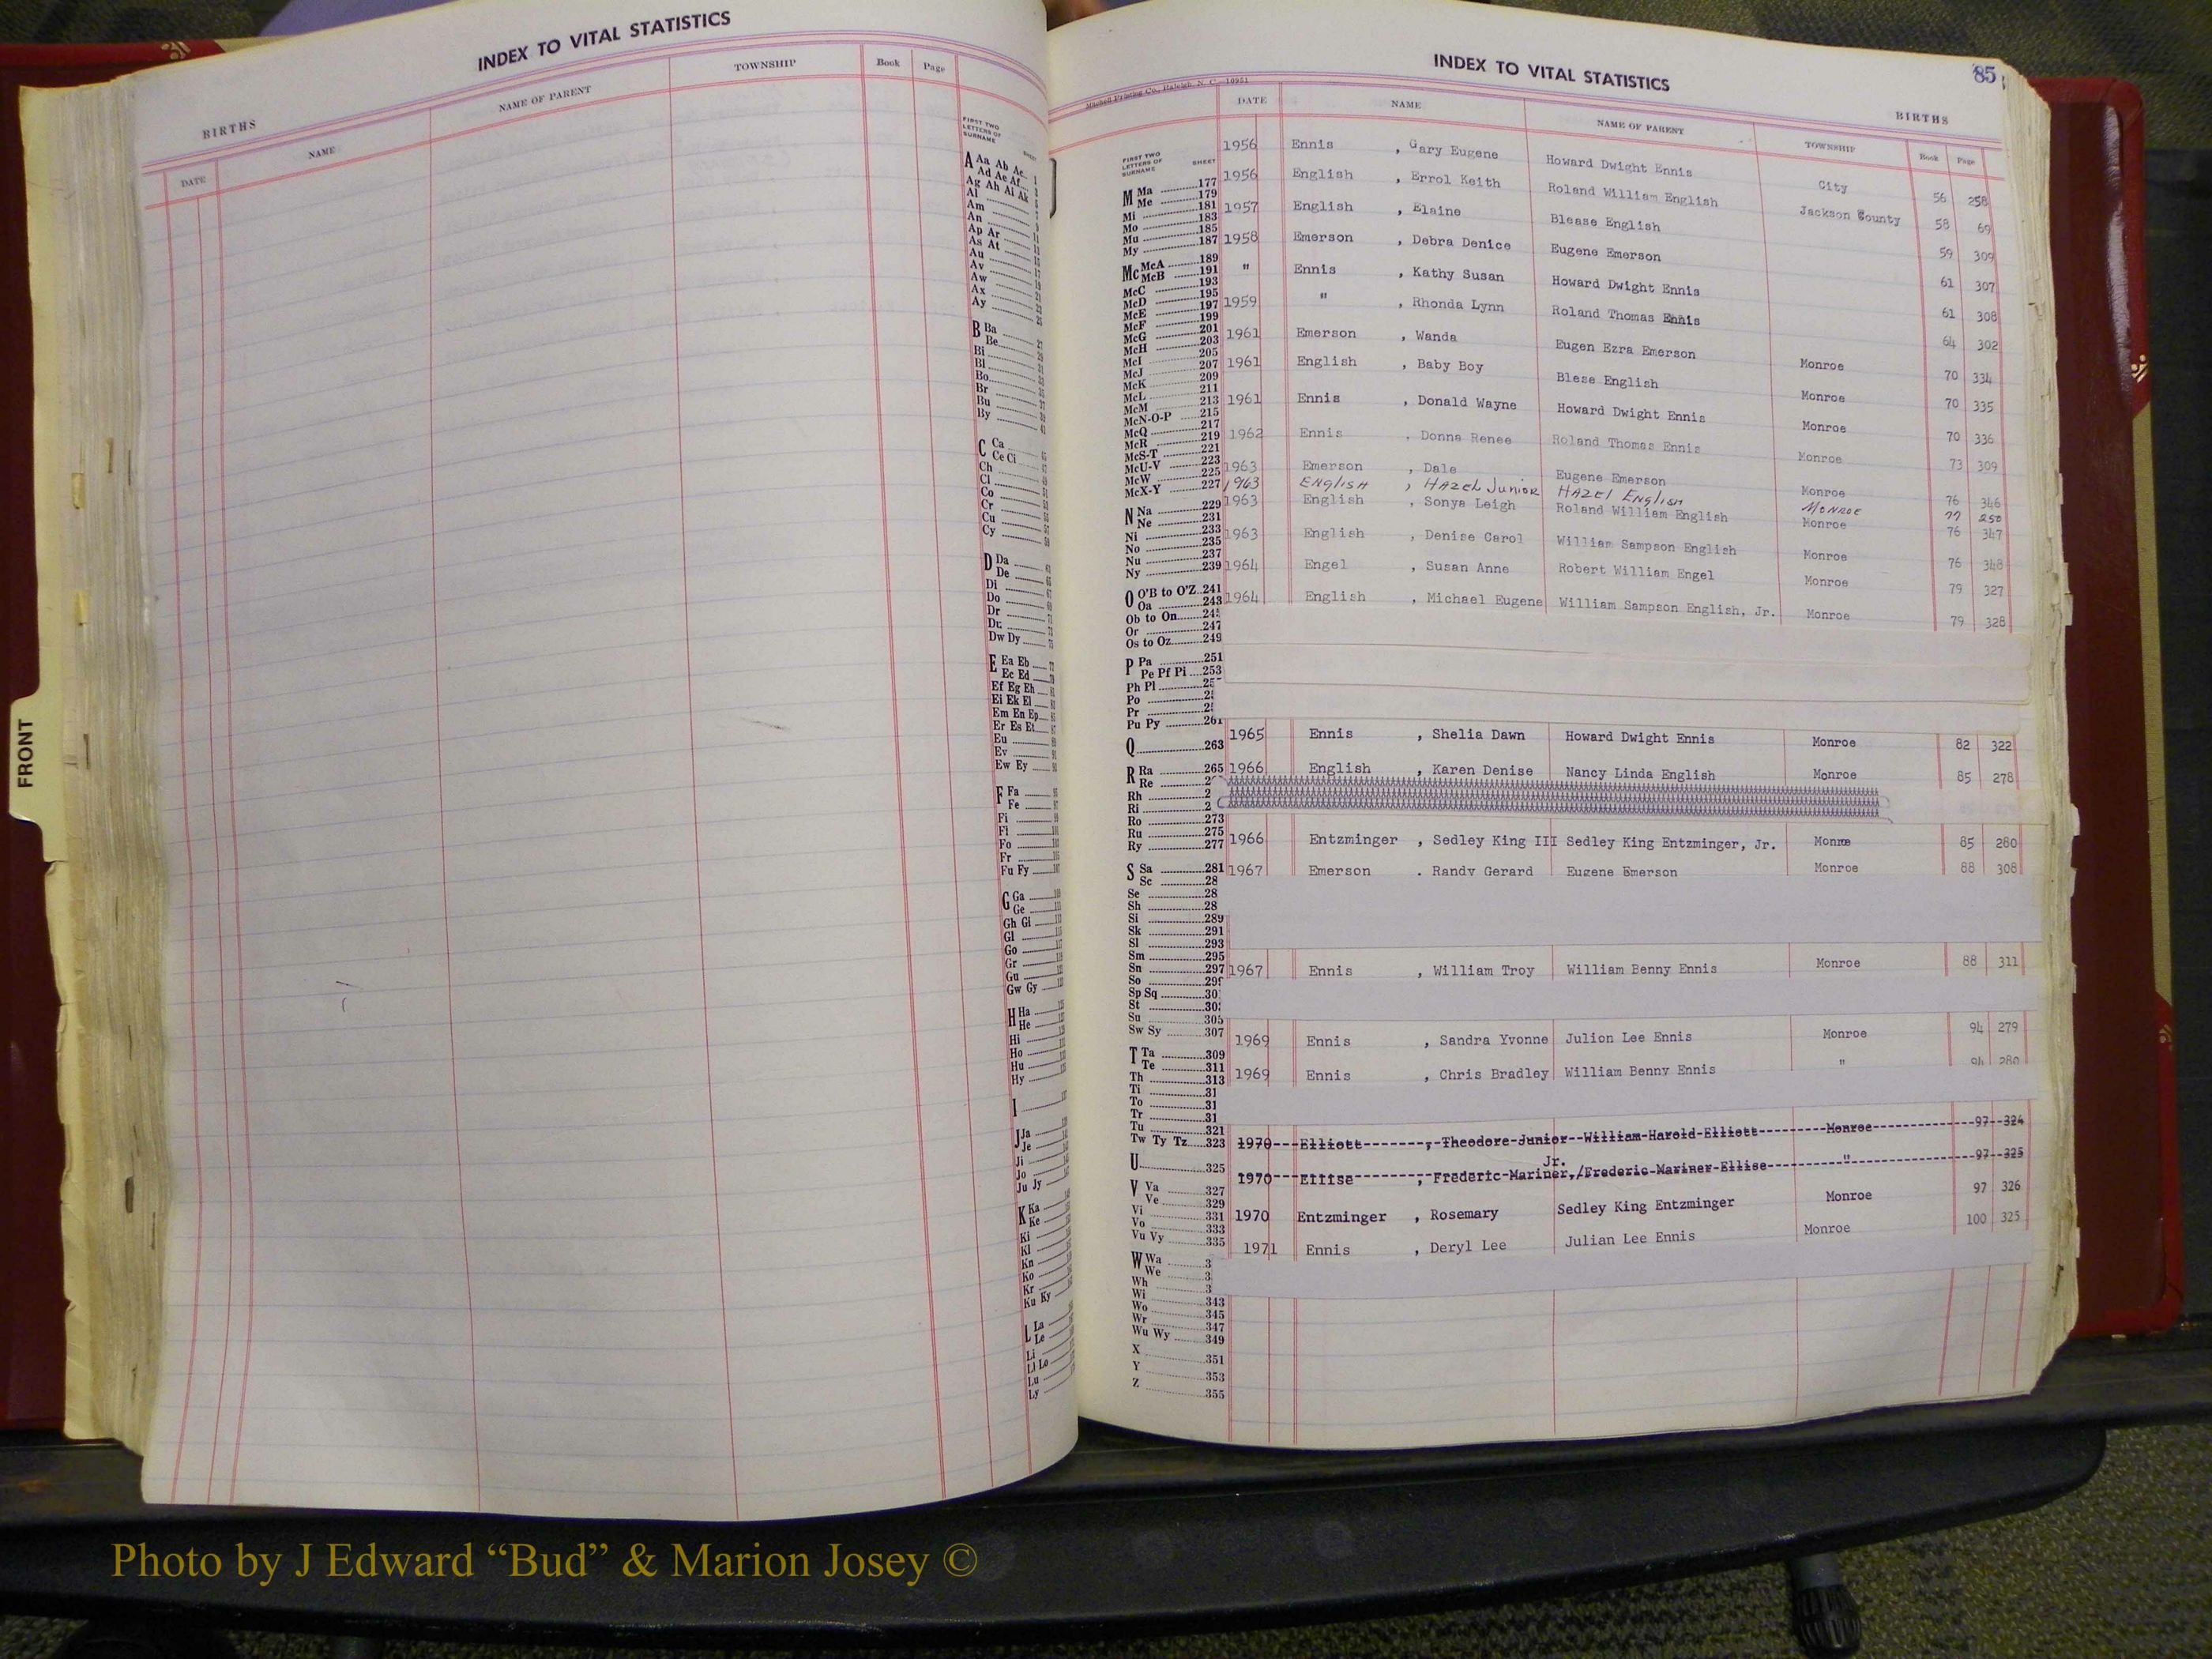 INDEX TO VITAL STATISTICS
BIRTHS
DATE NAME NAME OF PARENT TOWNSHIP Book Page
FRONT
FIRST TWO LETTERS OF SURNAME
A Aa Ab Ac
Ad Ae Af
Ag Ah Ai Ak
Al
Am
An
Ap Ar
As At
Au
Av
Aw
Ax
Ay
B Ba
Be
Bi
Bl
Bo
Br
Bu
By
C Ca
Ce Ci
Ch
Cl
Co
Cr
Cu
Cy
D Da
De
Di
Do
Dr
Du
Dw Dy
E Ea Eb
Ec Ed
Ef Eg Eh
Ei Ek El
Em En Ep
Er Es Et
Eu
Ev
Ew Ey
F Fa
Fe
Fi
Fl
Fo
Fr
Fu Fy
G Ga
Ge
Gh Gi
Gl
Go
Gr
Gu
Gw Gy
H Ha
He
Hi
Ho
Hu
Hy
I
J Ja
Je
Ji
Jo
Ju Jy
K Ka
Ke
Ki
Kl
Kn
Ko
Kr
Ku Ky
L La
Le
Li
Ll Lo
Lu
Ly
INDEX TO VITAL STATISTICS
85
Mitchell Printing Co., Raleigh, N. C. 10951
BIRTHS
DATE NAME NAME OF PARENT TOWNSHIP Book Page
FIRST TWO LETTERS OF SURNAME SHEET
M Ma 177
Me 179
Mi 181
Mo 183
Mu 185
My 187
Mc McA 189
McB 191
McC 193
McD 195
McE 197
McF 199
McG 201
McH 203
McI 205
McJ 207
McK 209
McL 211
McM 213
McN-O-P 215
McQ 217
McR 219
McS-T 221
McU-V 223
McW 225
McX-Y 227
N Na 229
Ne 231
Ni 233
No 235
Nu 237
Ny 239
O O'B to O'Z 241
Oa 243
Ob to On
Or 247
Os to Oz 249
P Pa 251
Pe Pf Pi 253
Ph Pl
Po
Pr
Pu Py 261
Q 263
R Ra 265
Re
Rh
Ri
Ro 273
Ru 275
Ry 277
S Sa 281
Sc 28
Se 28
Sh 28
Si 289
Sk 291
Sl 293
Sm 295
Sn 297
So 299
Sp Sq 30
St 30
Su 305
Sw Sy 307
T Ta 309
Te 311
Th 313
Ti 31
To 31
Tr 31
Tu 321
Tw Ty Tz 323
U 325
V Va 327
Ve 329
Vi 331
Vo 333
Vu Vy 335
W Wa 3
We 3
Wh 3
Wi 343
Wo 345
Wr 347
Wu Wy 349
X 351
Y 353
Z 355
1956 Ennis , Gary Eugene Howard Dwight Ennis City 56 258
1956 English , Errol Keith Roland William English Jackson County 58 69
1957 English , Elaine Blease English 59 309
1958 Emerson , Debra Denice Eugene Emerson 61 307
" Ennis , Kathy Susan Howard Dwight Ennis 61 308
1959 " , Rhonda Lynn Roland Thomas Ennis 64 302
1961 Emerson , Wanda Eugen Ezra Emerson Monroe 70 334
1961 English , Baby Boy Blese English Monroe 70 335
1961 Ennis , Donald Wayne Howard Dwight Ennis Monroe 70 336
1962 Ennis , Donna Renee Roland Thomas Ennis Monroe 73 309
1963 Emerson , Dale Eugene Emerson Monroe 76 346
1963 ENGLISH , HAZEL Junior HAZEL ENGLISH MONROE 77 250
1963 English , Sonya Leigh Roland William English Monroe 76 347
1963 English , Denise Carol William Sampson English Monroe 76 348
1964 Engel , Susan Anne Robert William Engel Monroe 79 327
1964 English , Michael Eugene William Sampson English, Jr. Monroe 79 328
1965 Ennis , Shelia Dawn Howard Dwight Ennis Monroe 82 322
1966 English , Karen Denise Nancy Linda English Monroe 85 278
1966 Entzminger , Sedley King III Sedley King Entzminger, Jr. Monroe 85 280
1967 Emerson , Randy Gerard Eugene Emerson Monroe 88 308
1967 Ennis , William Troy William Benny Ennis Monroe 88 311
1969 Ennis , Sandra Yvonne Julion Lee Ennis Monroe 94 279
1969 Ennis , Chris Bradley William Benny Ennis " 94 280
1970---Elliott--------, Theodore-Junior--William-Harold-Elliott---------Monroe---97--324
Jr.
1970---Ellise--------, Frederic-Mariner,/Frederic-Mariner-Ellise---------"---97--325
1970 Entzminger , Rosemary Sedley King Entzminger Monroe 97 326
1971 Ennis , Deryl Lee Julian Lee Ennis Monroe 100 325
Photo by J Edward “Bud” & Marion Josey ©